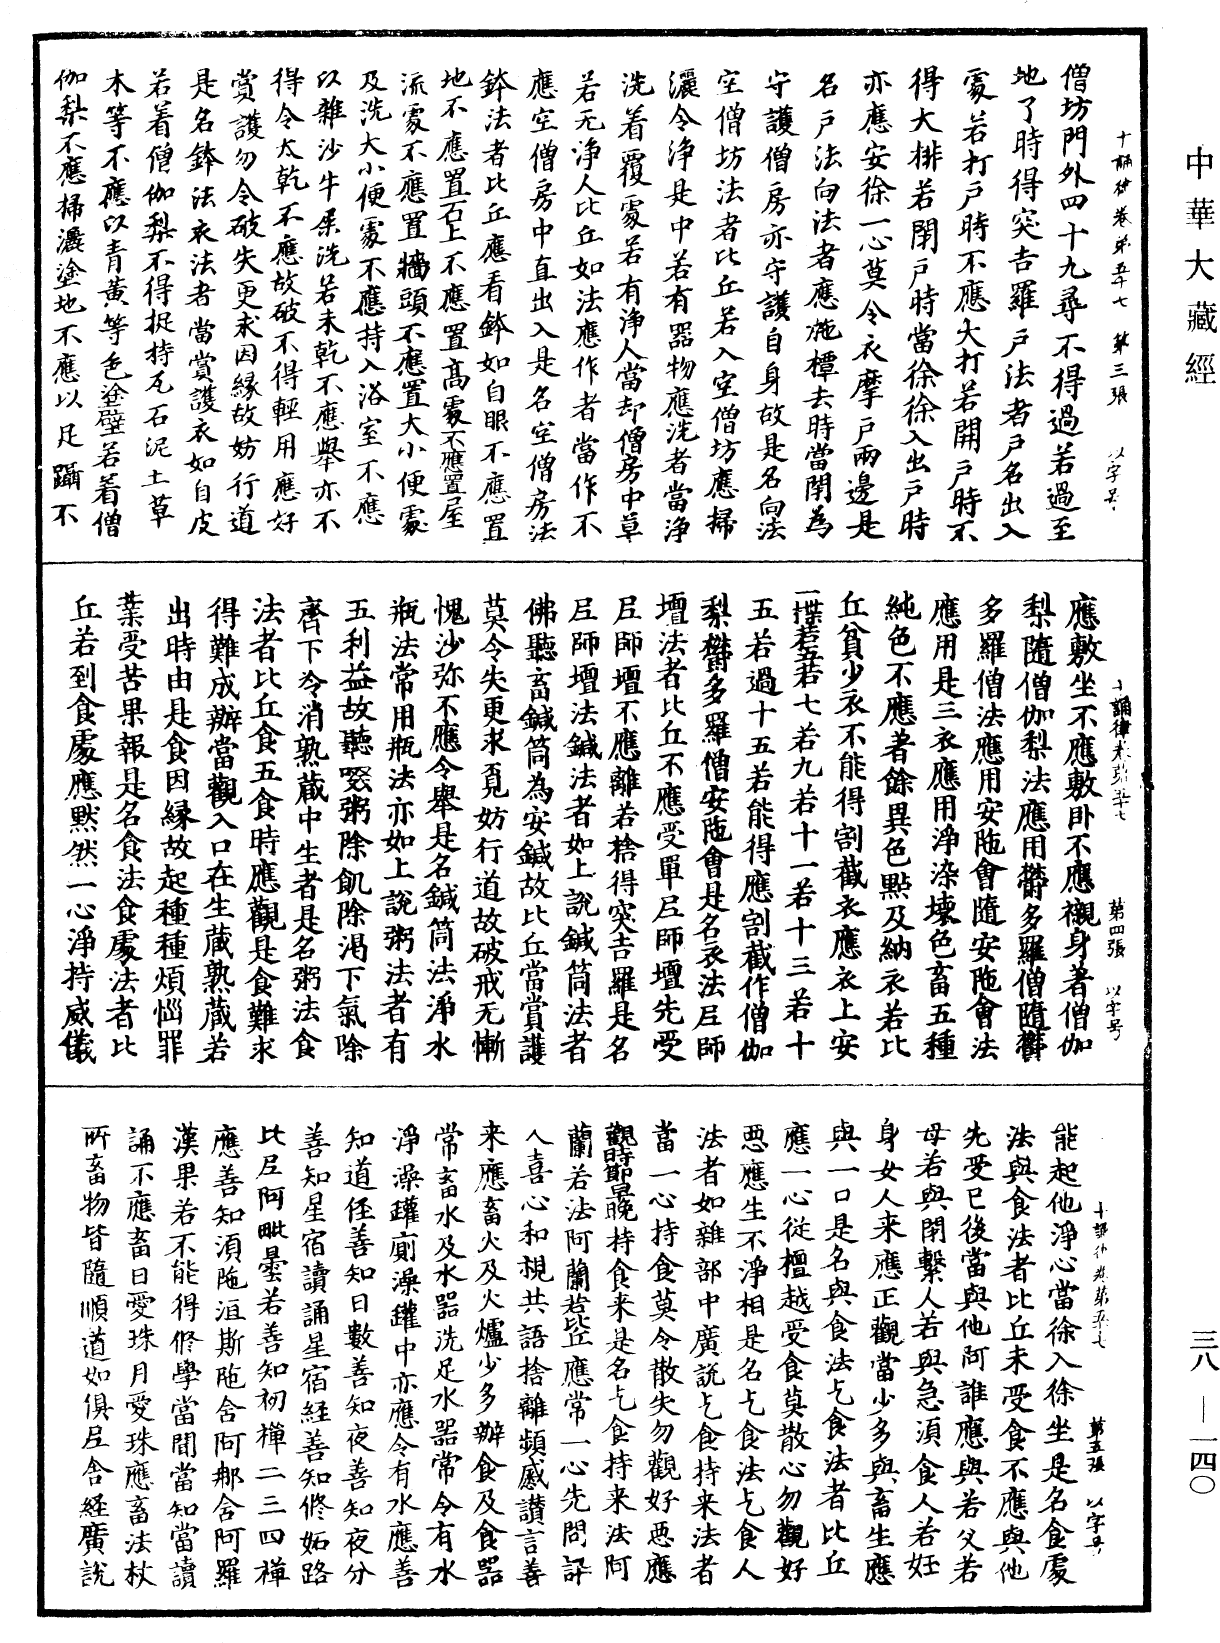 中華大藏經
十誦律卷第五十七 第三張 以字号
僧坊門外四十九尋不得過若過至
地了時得突吉羅戶法者戶名出入
處若打戶時不應大打若開戶時不
得大排若閉戶時當徐徐入出戶時
亦應安徐一心莫令衣摩戶兩邊是
名戶法向法者應施橝去時當閉為
守護僧房亦守護自身故是名向法
空僧坊法者比丘若入空僧坊應掃
灑令淨是中若有器物應洗者當淨
洗着覆處若有淨人當却僧房中草
若无淨人比丘如法應作者當作不
應空僧房中直出入是名空僧房法
鉢法者比丘應看鉢如自眼不應置
地不應置石上不應置高處不應置屋
流處不應置牆頭不應置大小便處
及洗大小便處不應持入浴室不應
以雜沙牛屎洗若未乾不應舉亦不
得令太乾不應故破不得輕用應好
賞護勿令破失更求因緣故妨行道
是名鉢法衣法者當賞護衣如自皮
若着僧伽梨不得捉持瓦石泥土草
木等不應以青黃等色塗壁若着僧
伽梨不應掃灑塗地不應以足躡不
十誦律卷第五十七 第四張 以字号
應敷坐不應敷臥不應襯身著僧伽
梨隨僧伽梨法應用欝多羅僧隨欝
多羅僧法應用安陁會隨安陁會法
應用是三衣應用淨染壞色畜五種
純色不應著餘異色點及納衣若比
丘貧少衣不能得割截衣應衣上安
一揲若五若七若九若十一若十三若十
五若過十五若能得應割截作僧伽
梨欝多羅僧安陁會是名衣法尼師
壇法者比丘不應受單尼師壇先受
尼師壇不應離若捨得突吉羅是名
尼師壇法鍼法者如上說鍼筒法者
佛聽畜鍼筒為安鍼故比丘當賞護
莫令失更求覓妨行道故破戒无慚
愧沙弥不應令舉是名鍼筒法淨水
瓶法常用瓶法亦如上說粥法者有
五利益故聽啜粥除飢除渴下氣除
齊下冷消熟藏中生者是名粥法食
法者比丘食五食時應觀是食難求
得難成辦當觀入口在生藏熟藏若
出時由是食因緣故起種種煩惱罪
業受苦果報是名食法食處法者比
丘若到食處應默然一心淨持威儀
十誦律卷第五十七 第五張 以字号
能起他淨心當徐入徐坐是名食處
法與食法者比丘未受食不應與他
先受已後當與他阿誰應與若父若
母若與閉繫人若與急須食人若妊
身女人來應正觀當少多與畜生應
與一口是名與食法乞食法者比丘
應一心從檀越受食莫散心勿觀好
惡應生不淨相是名乞食法乞食人
法者如雜部中廣說乞食持来法者
當一心持食莫令散失勿觀好惡應
觀時節早晚持食来是名乞食持来法阿
蘭若法阿蘭若比丘應常一心先問訊
人喜心和視共語捨離頻慼讚言善
来應畜火及火爐少多辦食及食器
常畜水及水器洗足水器常令有水
淨澡罐廁澡罐中亦應令有水應善
知道徑善知日數善知夜善知夜分
善知星宿讀誦星宿經善知修妬路
比尼阿毗曇若善知初禪二三四禪
應善知須陁洹斯陁含阿那含阿羅
漢果若不能得修學當聞當知當讀
誦不應畜日愛珠月愛珠應畜法杖
所畜物皆隨順道如俱尼舍經廣說
三八—一四〇